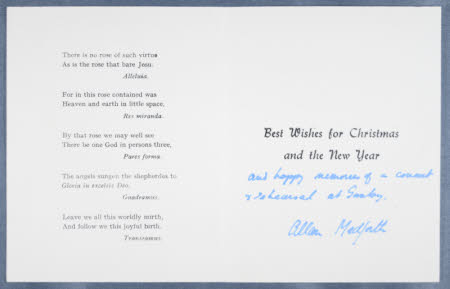 There is no rose of such virtue
As is the rose that bare Jesu.
Alleluia.
For in this rose contained was
Heaven and earth in little space,
Res miranda.
By that rose we may well see
There be one God in persons three,
Pares forma.
The angels sungen the shepherdes to
Gloria in excelsis Deo.
Gaudeamus.
Leave we all this worldly mirth,
And follow we this joyful birth.
Transeamus.
Best Wishes for Christmas
and the New Year
and happy memories of a concert
& rehearsal at
Allan